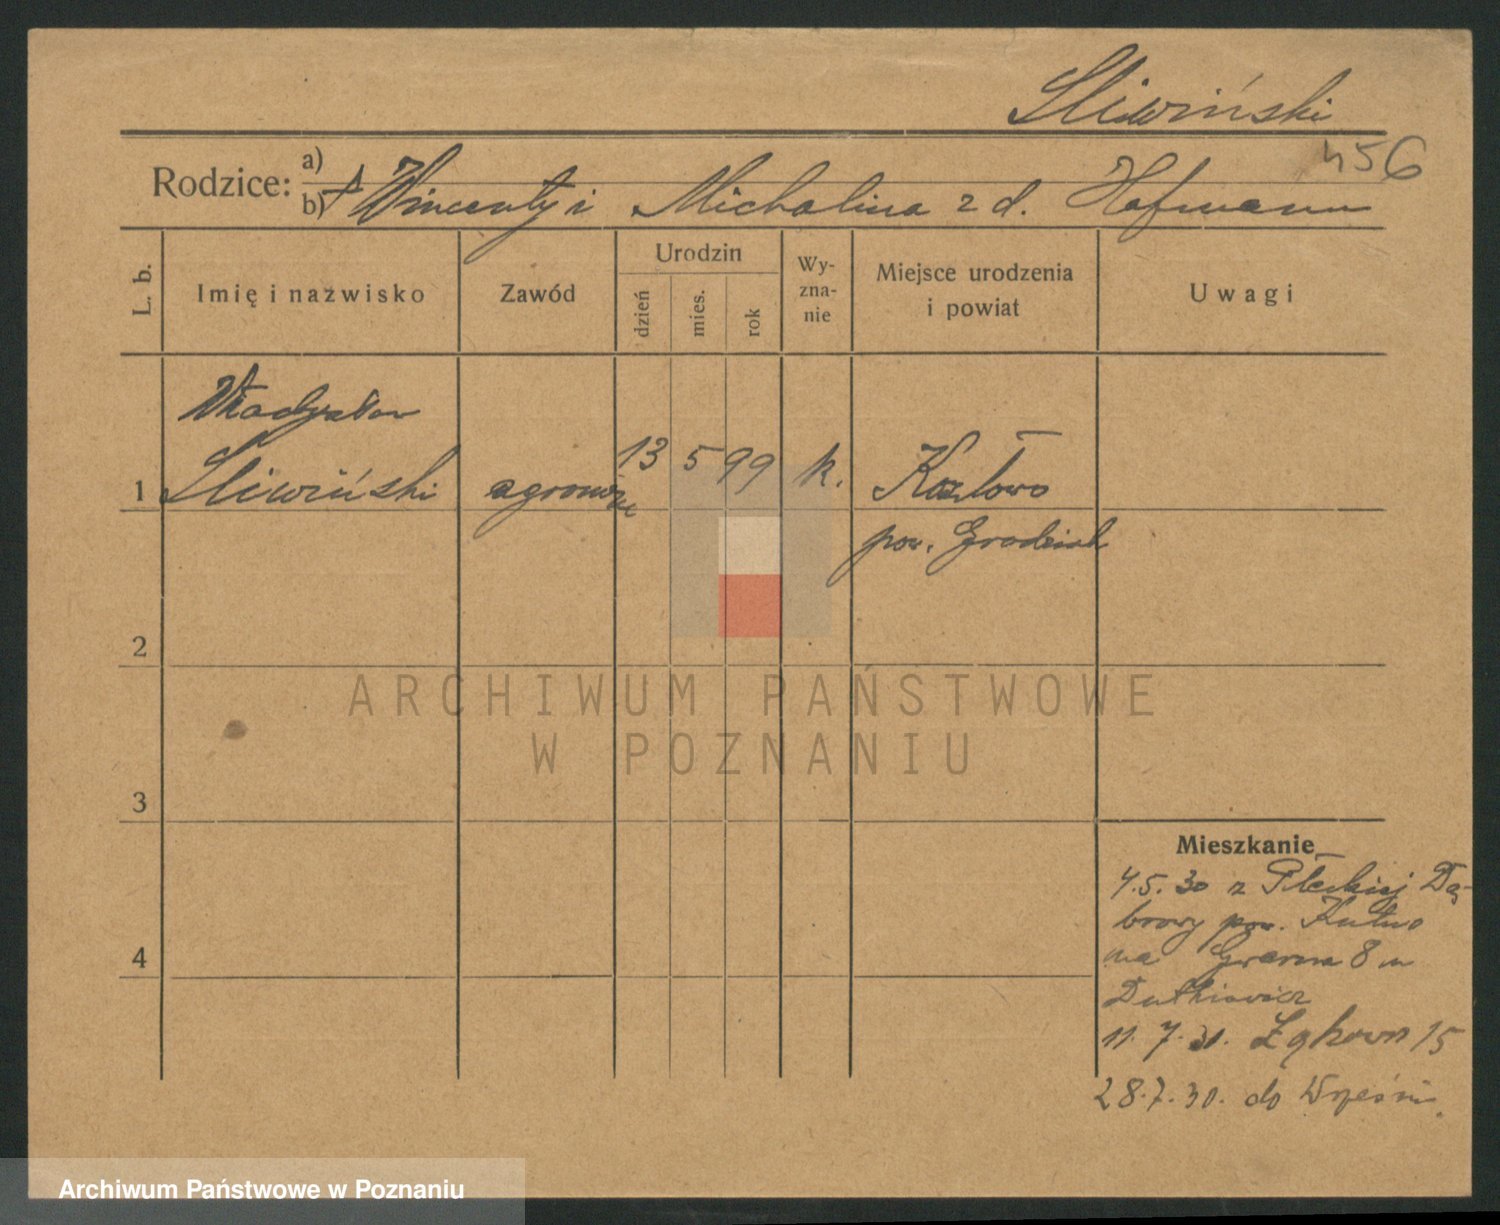 Śliwiński
456
Rodzice: a)
b) † Wincenty i Michalina z d. Hofmann
L. b.
Imię i nazwisko
Zawód
Urodzin
dzień
mies.
rok
Wy-
zna-
nie
Miejsce urodzenia
i powiat
Uwagi
Władysław
1 Śliwiński agronom 13 5 99 k. Kozłowo
pow. Grodzisk
2
ARCHIWUM PAŃSTWOWE
W POZNANIU
3
Mieszkanie
4.5.30 z Dą-
browy pow. Kutno
4
na Gwarna 8 m
Dutkiewicz
11.7.30. Łąkowa 15
28.7.30. do Wrześni.
Archiwum Państwowe w Poznaniu